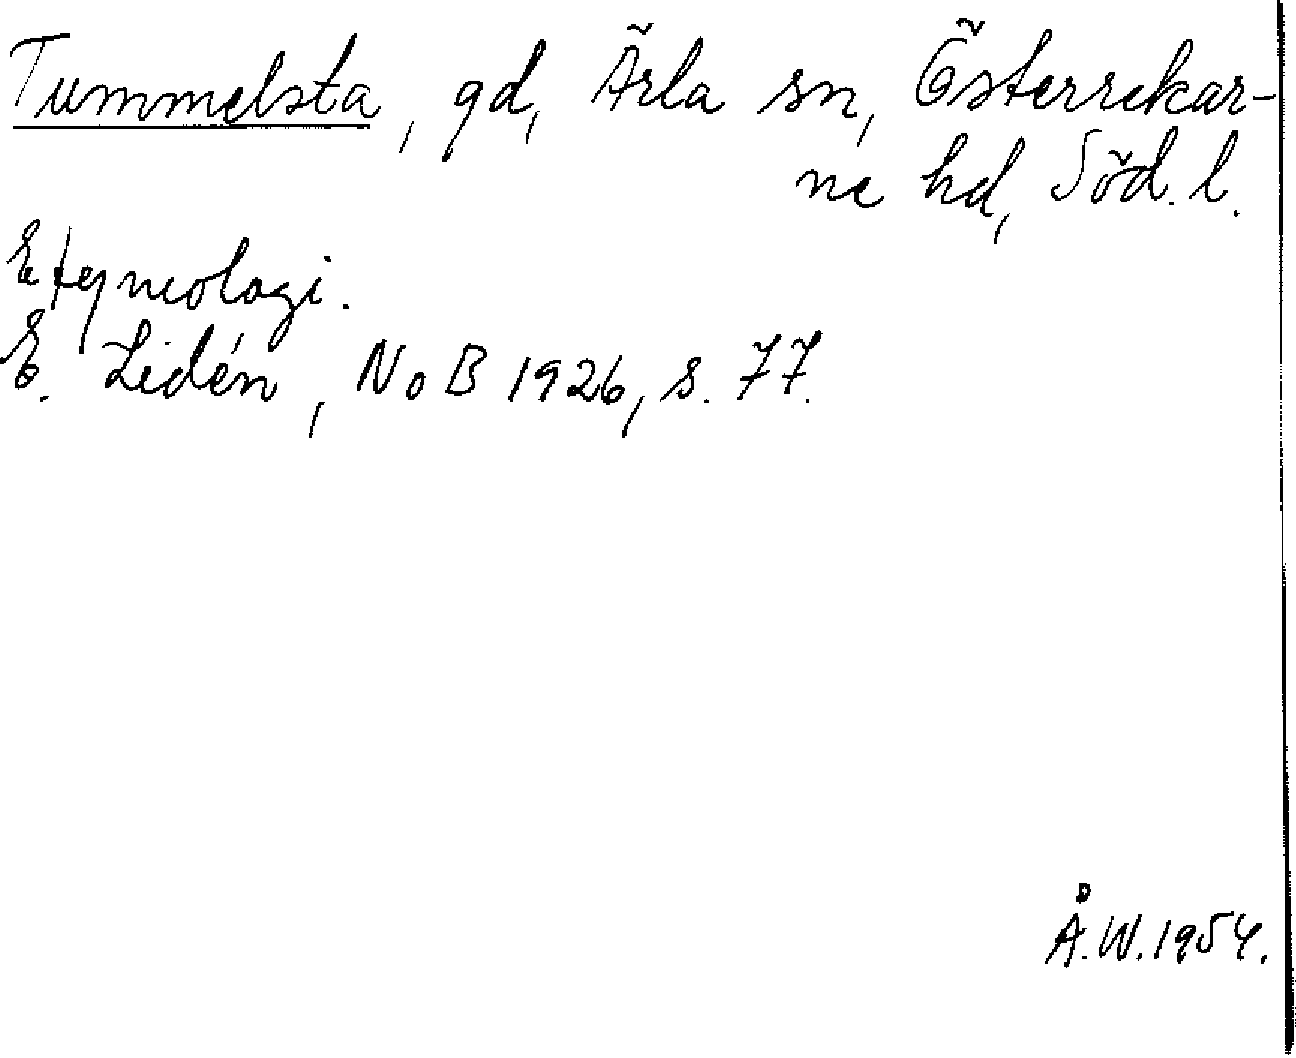 Tummelsta, gd, Ärla sn, Österrekar-
ne hd, Söd. l.
Etymologi.
E. Lidén, NoB 1926, s. 77.
Å.W. 1954.